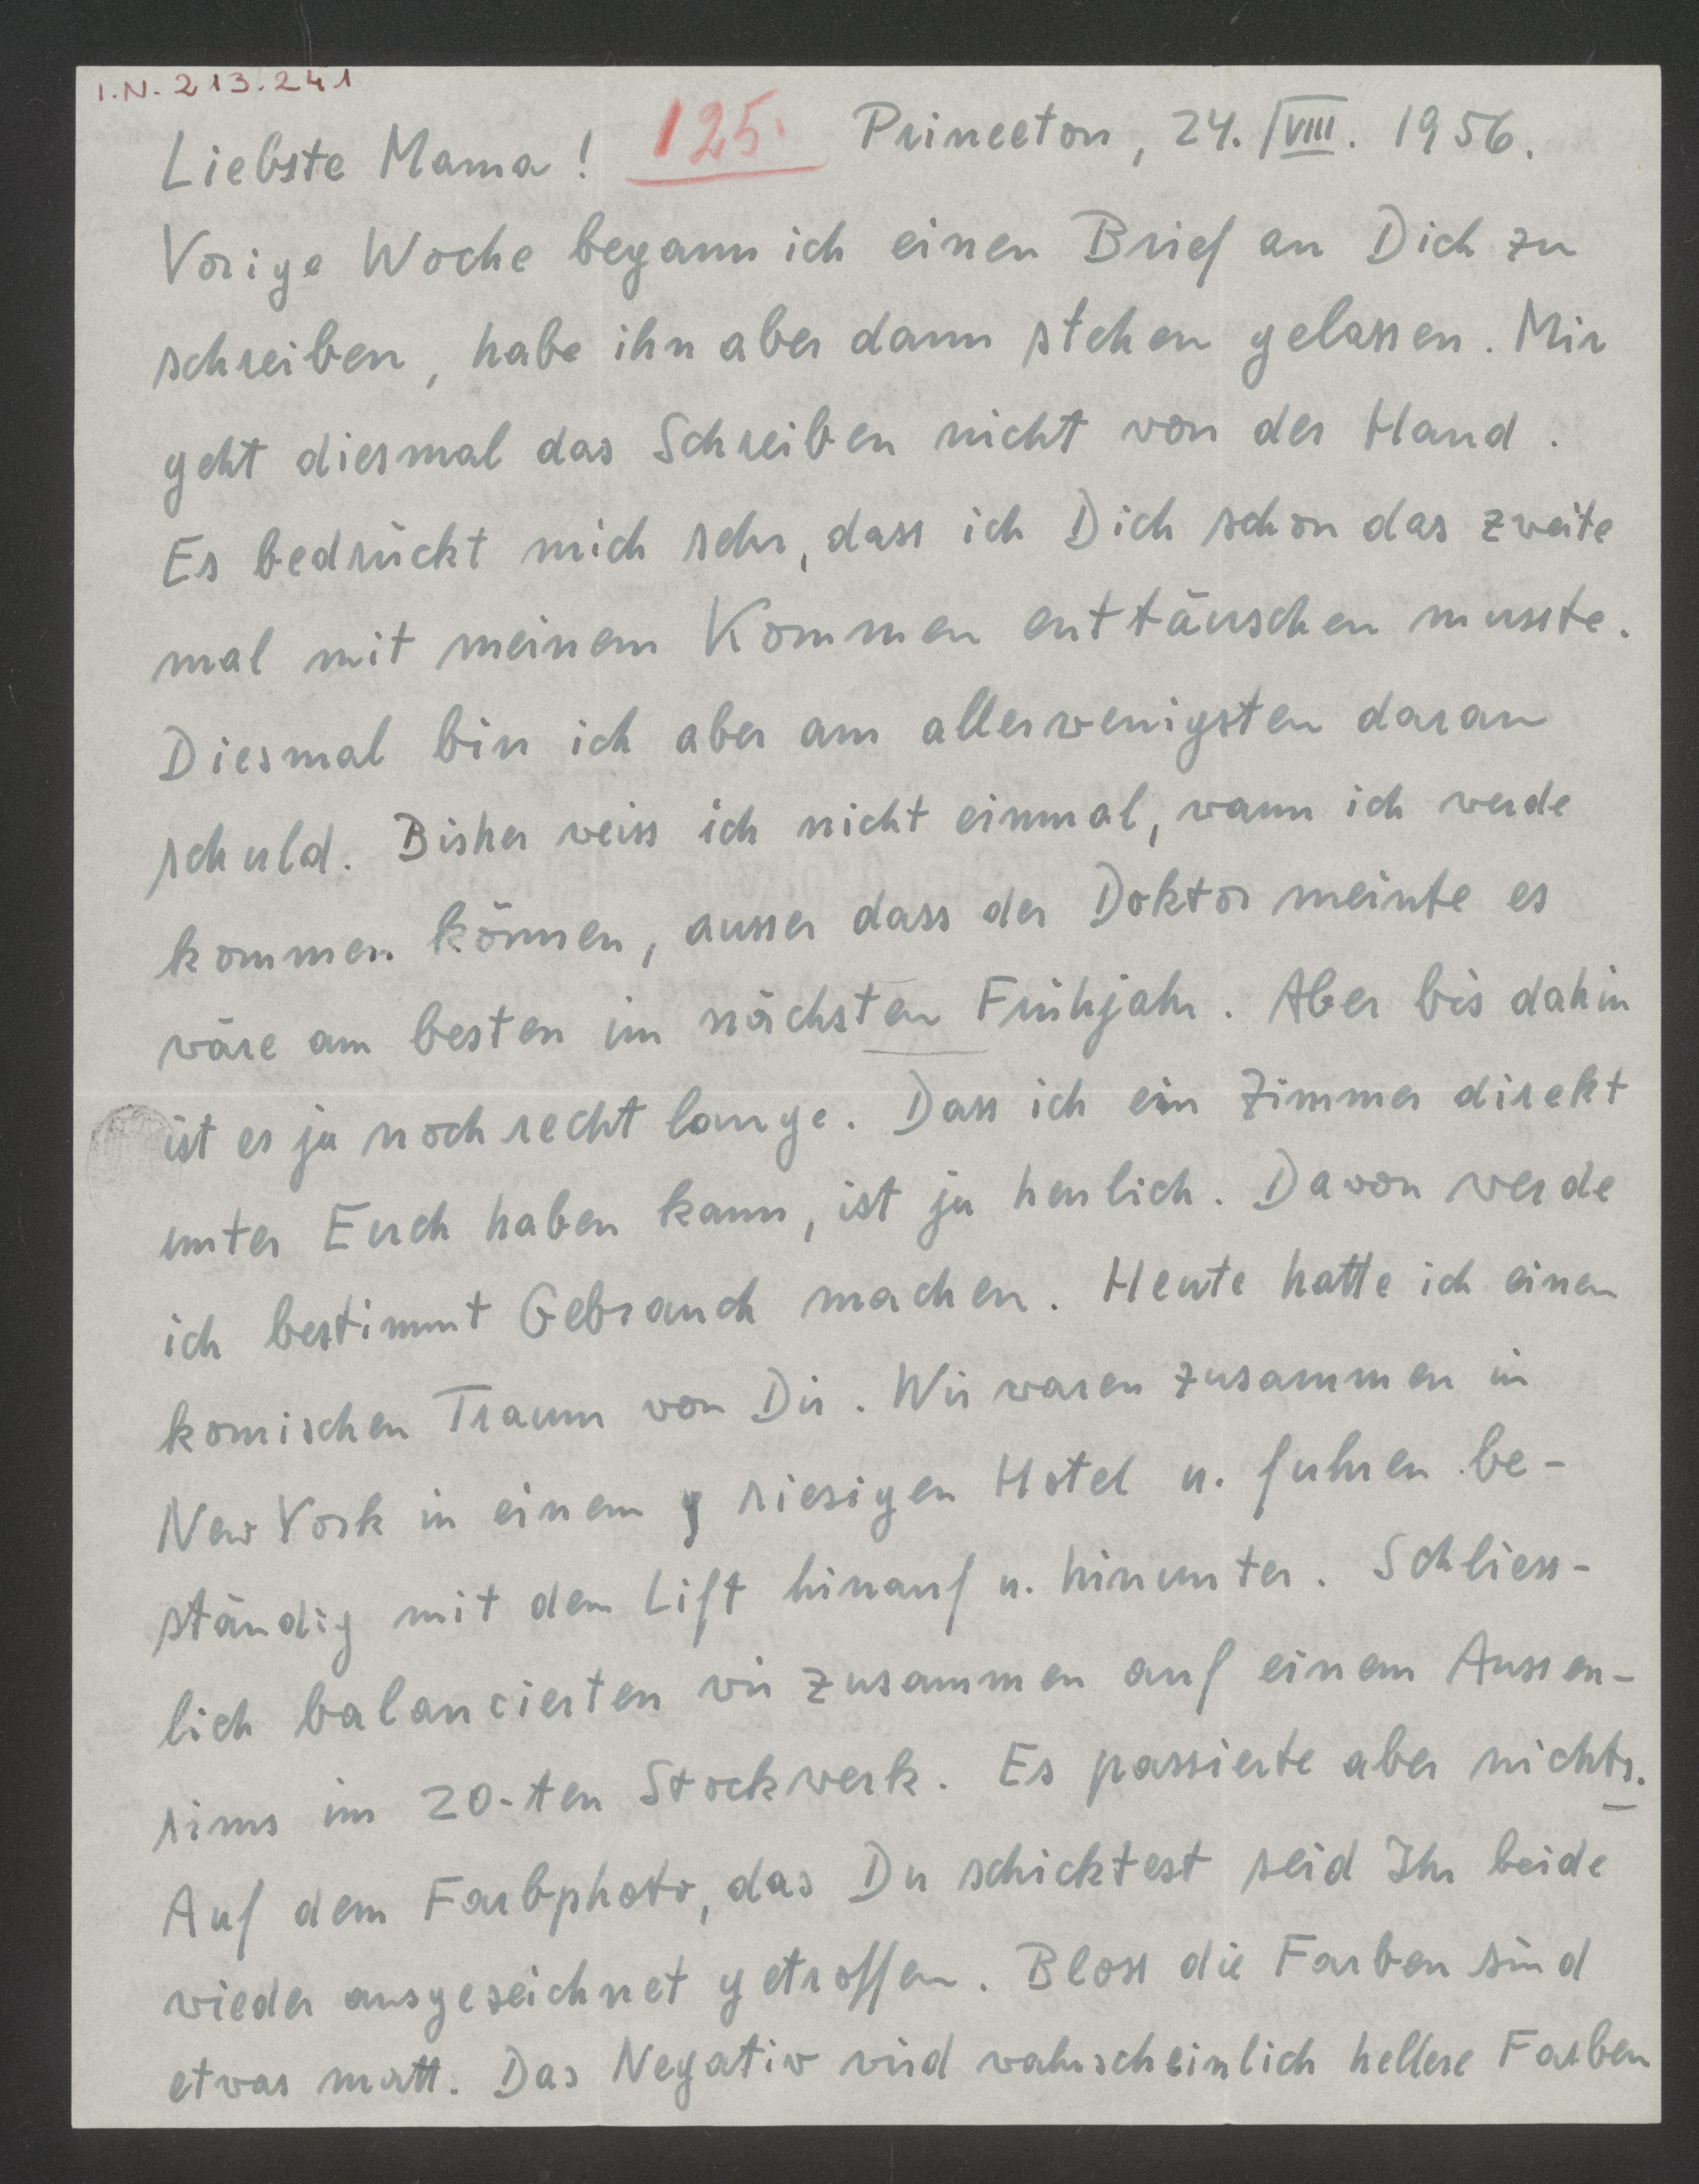 I.N. 213.241
Liebste Mama! 125. Princeton, 24./VIII. 1956.
Vorige Woche begann ich einen Brief an Dich zu
schreiben, habe ihn aber dann stehen gelassen. Mir
geht diesmal das Schreiben nicht von der Hand.
Es bedrückt mich sehr, dass ich Dich schon das zweite
mal mit meinem Kommen enttäuschen musste.
Diesmal bin ich aber am allerwenigsten daran
schuld. Bisher weiss ich nicht einmal, wann ich werde
kommen können, ausser dass der Doktor meinte es
wäre am besten im nächsten Frühjahr. Aber bis dahin
ist es ja noch recht lange. Dass ich ein Zimmer direkt
unter Euch haben kann, ist ja herrlich. Davon werde
ich bestimmt Gebrauch machen. Heute hatte ich einen
komischen Traum von Dir. Wir waren zusammen in
New York in einem riesigen Hotel u. fuhren be-
ständig mit dem Lift hinauf u. hinunter. Schliess-
lich balancierten wir zusammen auf einem Aussen-
sims im 20-ten Stockwerk. Es passierte aber nichts.
Auf dem Farbphoto, das Du schicktest seid Ihr beide
wieder ausgezeichnet getroffen. Bloss die Farben sind
etwas matt. Das Negativ wird wahrscheinlich hellere Farben